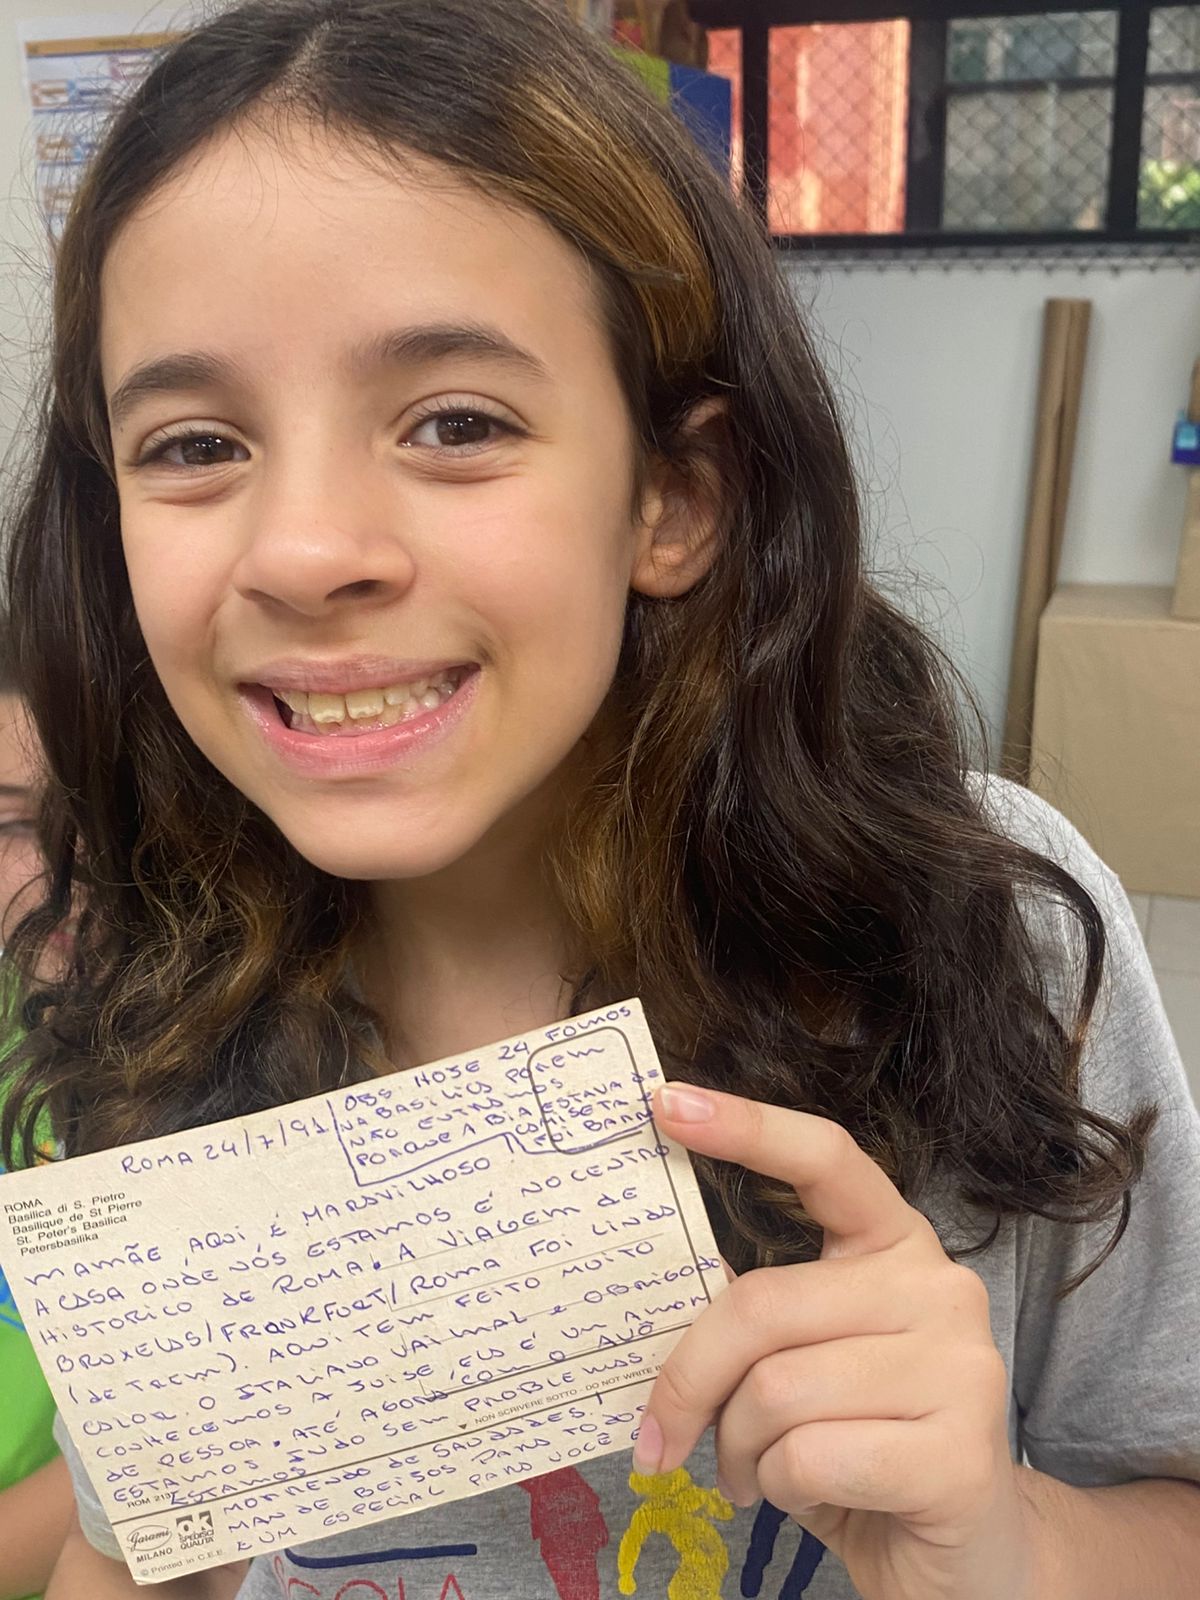 ROMA 24/7/91
OBS: HOJE 24 FOMOS
NA BASILICA POREM
NÃO ENTRAMOS
PORQUE A BIA ESTAVA DE
CAMISETA E
FOI BARR
ROMA
Basilica di S. Pietro
Basilique de St Pierre
St. Peter's Basilica
Petersbasilika
MAMÃE, AQUI É MARAVILHOSO!
A CASA ONDE NÓS ESTAMOS É NO CENTRO
HISTORICO DE ROMA. A VIAGEM DE
BRUXELAS/FRANKFURT/ROMA FOI LINDA
(DE TREM). AQUI TEM FEITO MUITO
CALOR. O ITALIANO VAI MAL E OBRIGADO
CONHECEMOS A JOISE, ELA É UM AMOR
DE PESSOA. ATÉ AGORA COM O AVÔ
ESTAMOS INDO SEM PROBLEMAS.
NON SCRIVERE SOTTO - DO NOT WRITE
ROM 213
ESTAMOS MORRENDO DE SAUDADES!
MANDE BEIJOS PARA TODOS
E UM ESPECIAL PARA VOCÊ
Garami
MILANO
OK
SPEDISCI
QUALITA'
© Printed in C.E.E.